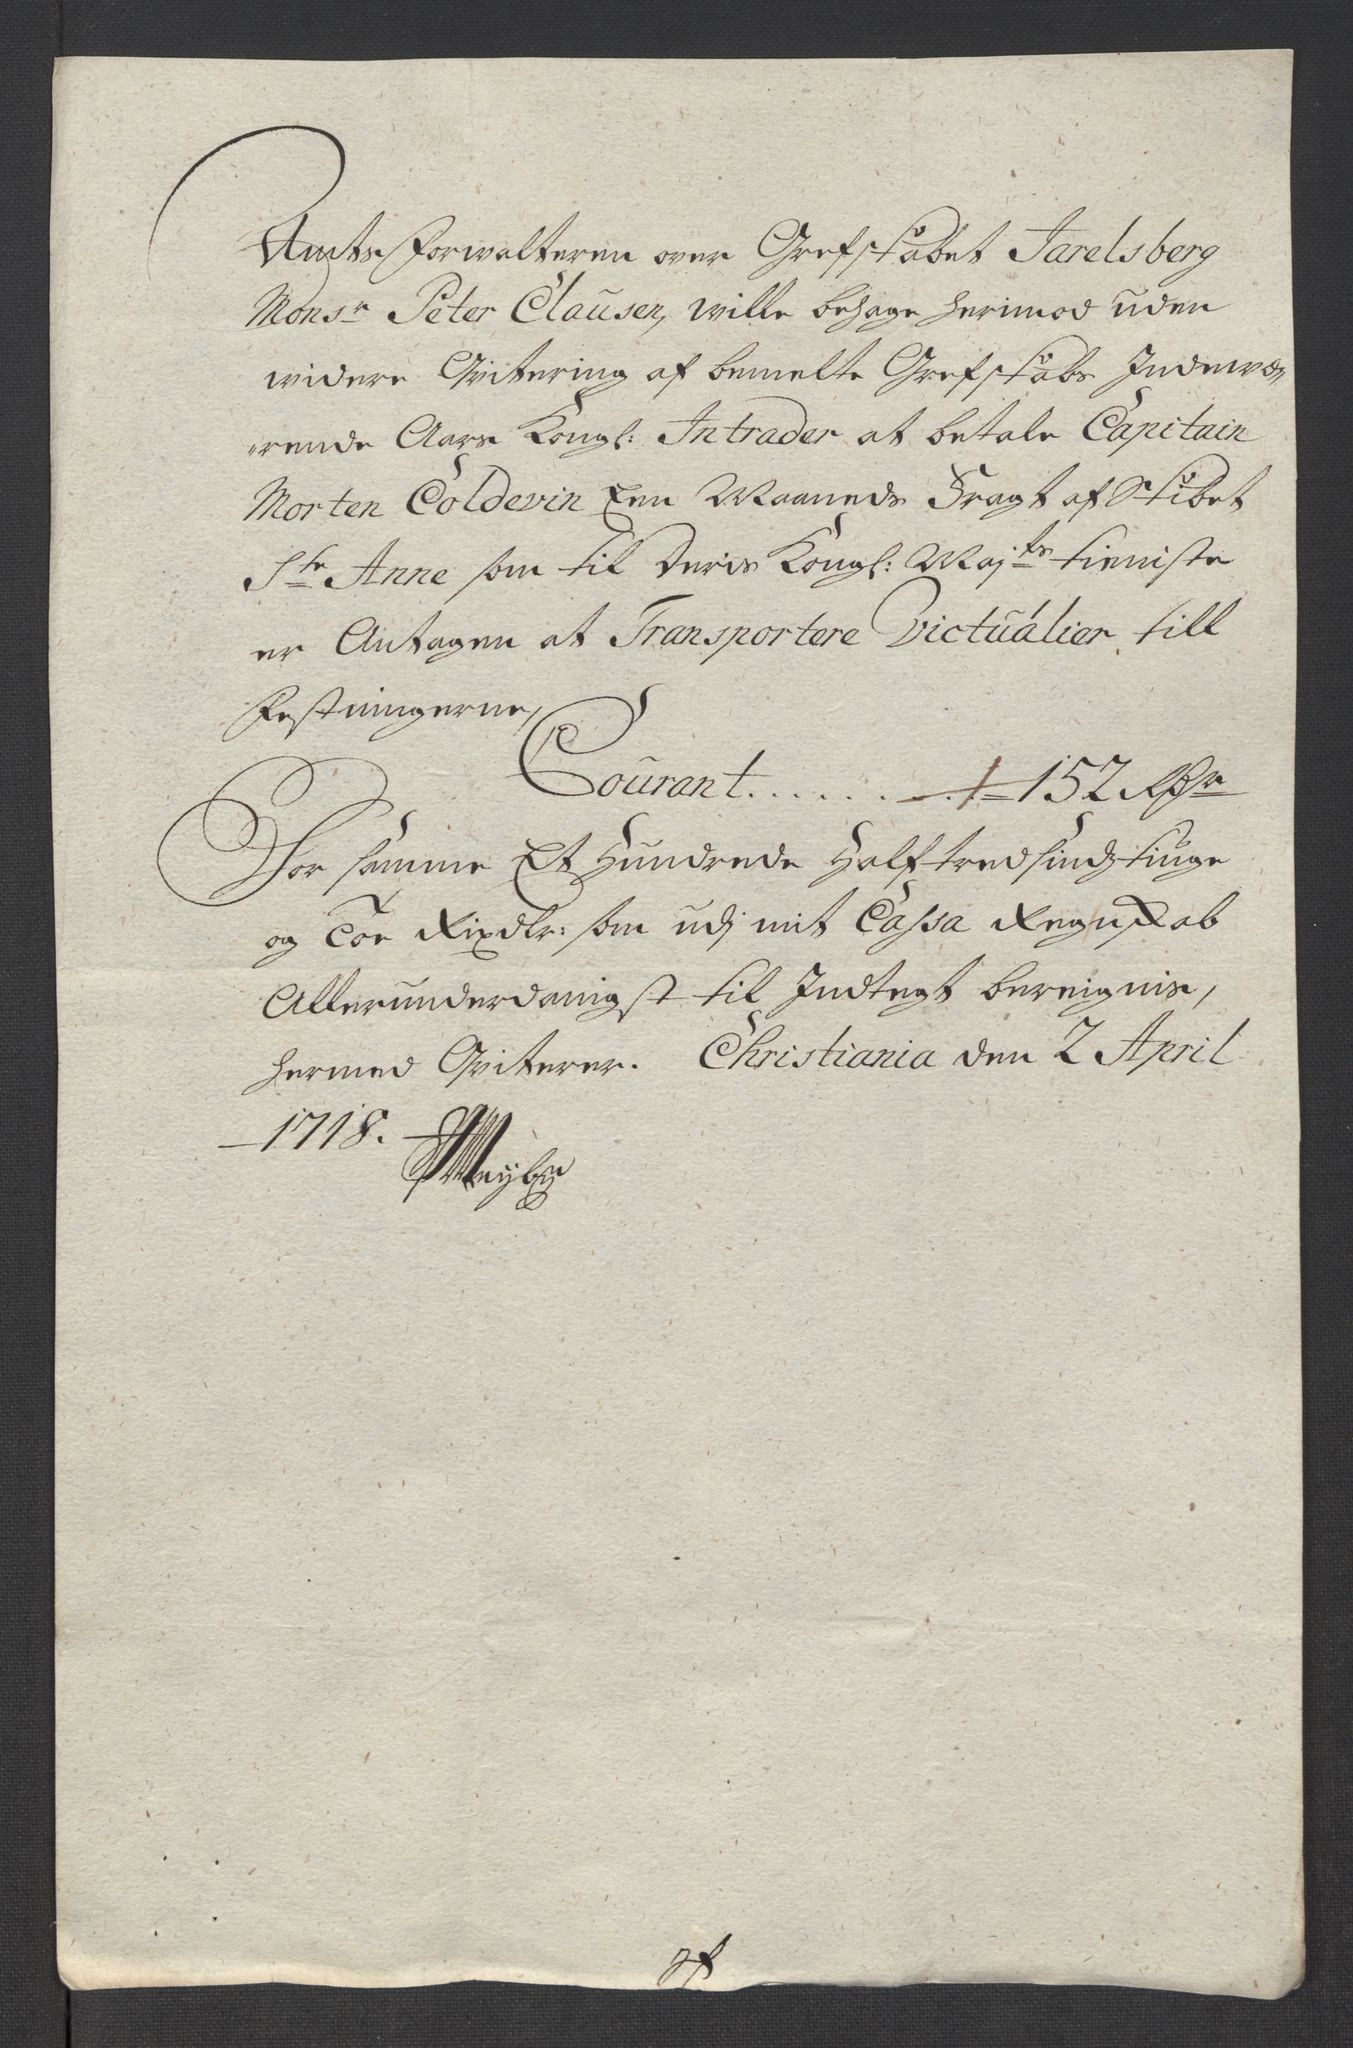 Amts Forwalteren over Grefskabet Jarelsberg
Monsr Peter Clausen, wille behage herimod uden
widere Qvitering af bemelte Grefskabs Indewæ,,
,,rende Aars Kongl: Intrader at betale Capitain
Morten Coldevin Een Maaneds Fragt af Skibet
Ste Anne som til Deris Kongl: Majts tieniste
er Antagen at Transportere Victualier till
Festningerne,
Courant . . . . . . . . 152 Rdr
For samme Et Hundrede Halftredsindztiuge
og Toe Rixdlr: som udj mit Cassa Regnskab
Allerunderdanigst til Indtegt bereignis,
hermed Qviterer. Christiania den 2 April
1718.